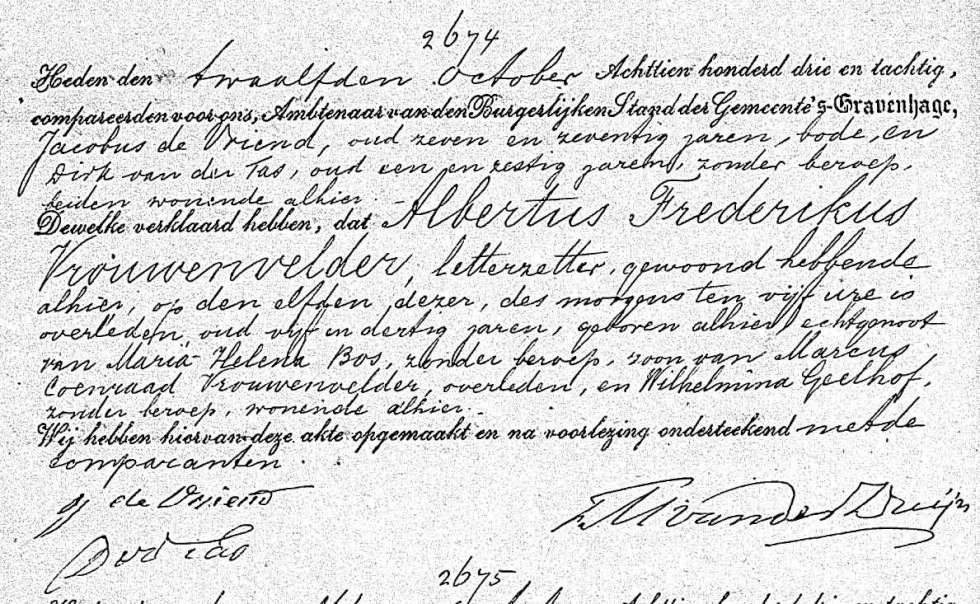 2674
Heden den twaalfden October Achttien honderd drie en tachtig,
compareerden voor ons, Ambtenaar van den Burgerlijken Stand der Gemeente 's-Gravenhage,
Jacobus de Vriend, oud zeven en zeventig jaren, bode, en
Dirk van der Tas, oud een en zestig jaren, zonder beroep,
beiden wonende alhier.
Dewelke verklaard hebben, dat Albertus Frederikus
Vrouwenvelder, letterzetter, gewoond hebbende
alhier, op den elfden dezer, des morgens ten vijf ure is
overleden, oud vijf en dertig jaren, geboren alhier, echtgenoot
van Maria Helena Bos, zonder beroep, zoon van Marcus
Coenraad Vrouwenvelder, overleden, en Wilhelmina Geelhof,
zonder beroep, wonende alhier.
Wij hebben hiervan deze akte opgemaakt en na voorlezing onderteekend met de
comparanten.
J de Vriend
D v d Tas
2675